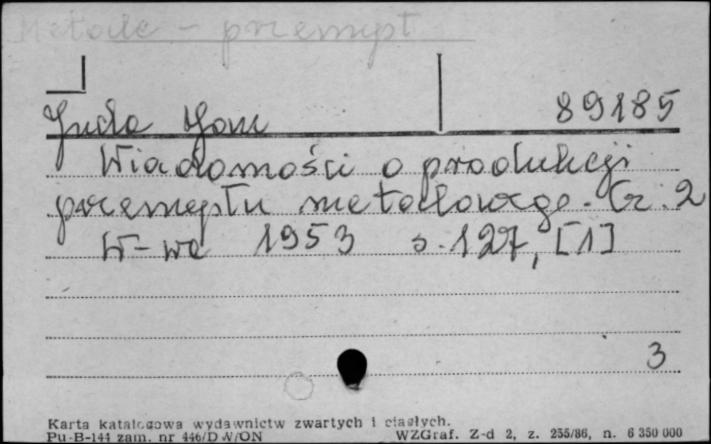 Metale - przemysł
Juda Jan 89185
Wiadomości o produkcji
przemysłu metalowego. Cz. 2
W-wa 1953 s. 127, [1]
3
Karta katalogowa wydawnictw zwartych i ciągłych.
Pu-B-144 zam. nr 446/D W/ON WZGraf. Z-d 2, z. 255/86, n. 6 350 000